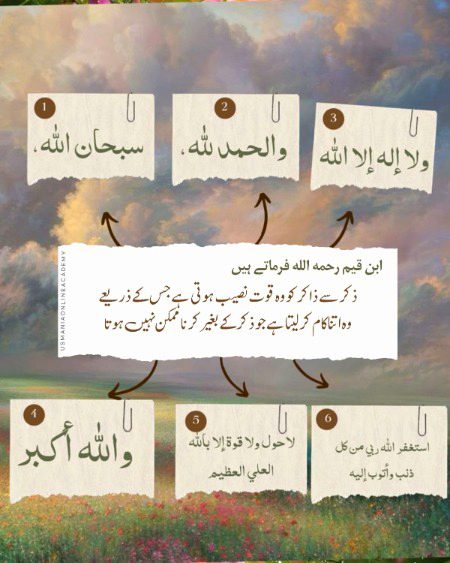 1
سبحان الله،
2
والحمد لله،
3
ولا إله إلا الله
ابن قیم رحمه الله فرماتے ہیں
ذکر سے ذاکر کو وہ قوت نصیب ہوتی ہے جس کے ذریعے
وہ اتنا کام کر لیتا ہے جو ذکر کے بغیر کرنا ممکن نہیں ہوتا
USMANIAONLINEACADEMY
4
والله أكبر
5
لاحول ولا قوة إلا بالله
العلي العظيم
6
استغفر الله ربي من كل
ذنب وأتوب إليه